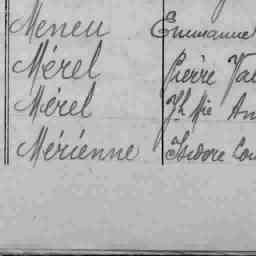 Meneu Emmanuel
Mérel Pierre Val
Mérel Jh Mie An
Mérienne Isidore Lou